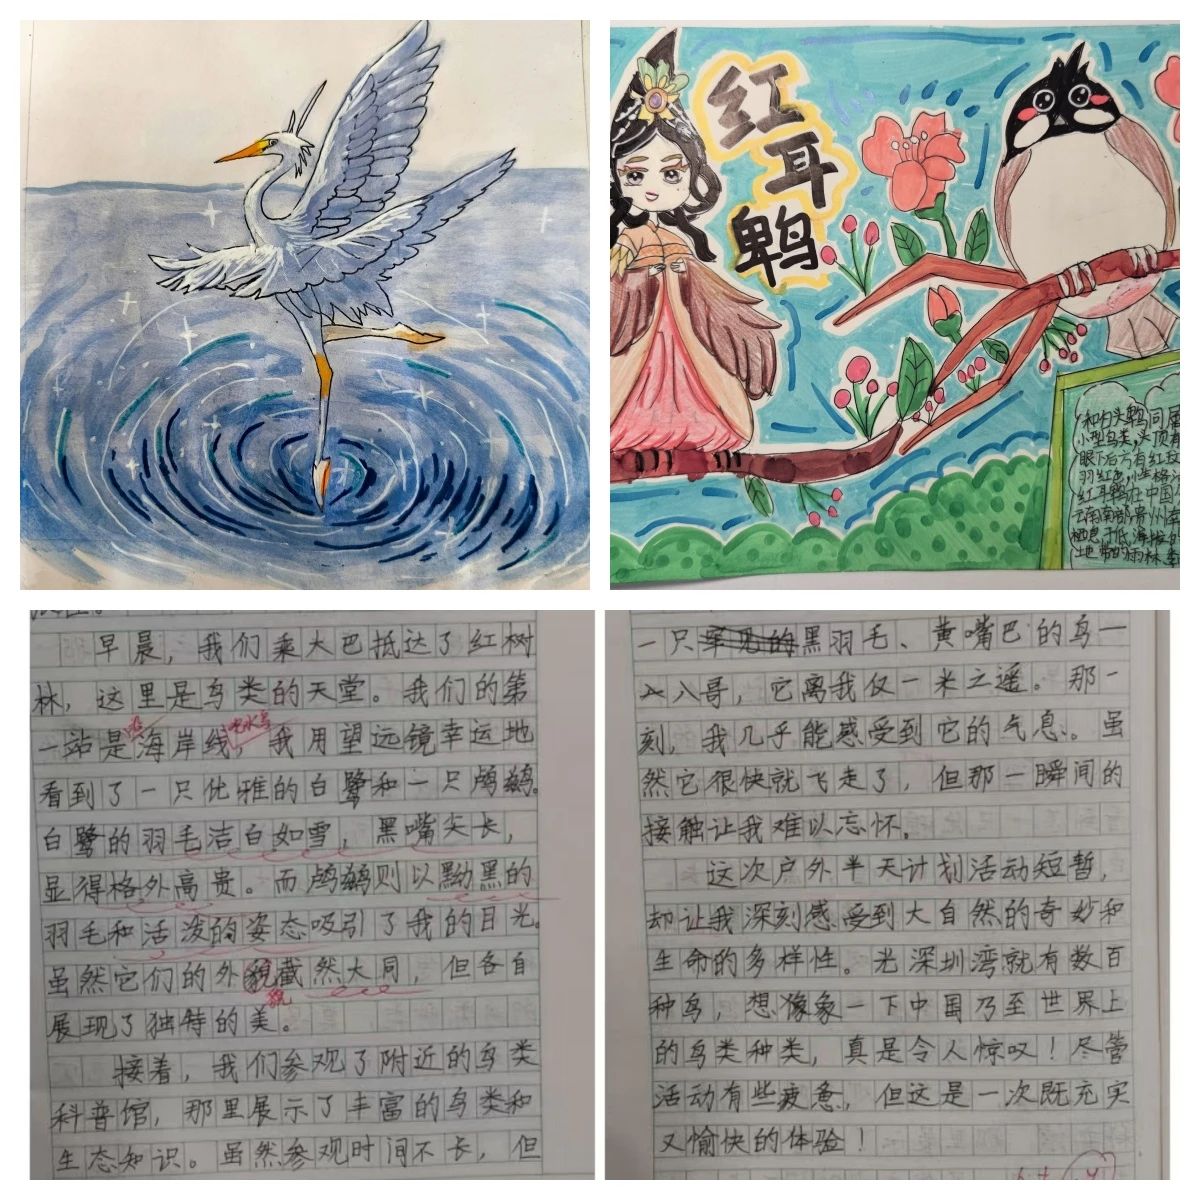 红
耳
鹎
和白头鹎同属
小型鸟类,头顶有
眼下后方有红
羽红色,性格
红耳鹎在中国
云南南部,贵州南
栖息于低海拔的
地带的雨林
早晨，我们乘大巴抵达了红树
林，这里是鸟类的天堂。我们的第
一站是海岸线，我用望远镜幸运地
看到了一只优雅的白鹭和一只鸬鹚。
白鹭的羽毛洁白如雪，黑嘴尖长，
显得格外高贵。而鸬鹚则以黝黑的
羽毛和活泼的姿态吸引了我的目光。
虽然它们的外貌截然大同，但各自
貌
展现了独特的美。
接着，我们参观了附近的鸟类
科普馆，那里展示了丰富的鸟类和
生态知识。虽然参观时间不长，但
一只罕见的黑羽毛、黄嘴巴的鸟一
八哥，它离我仅一米之遥。那一
刻，我几乎能感受到它的气息。虽
然它很快就飞走了，但那一瞬间的
接触让我难以忘怀。
这次户外半天计划活动短暂，
却让我深刻感受到大自然的奇妙和
生命的多样性。光深圳湾就有数百
种鸟，想像象一下中国乃至世界上
的鸟类种类，真是令人惊叹！尽管
活动有些疲惫，但这是一次既充实
又愉快的体验！